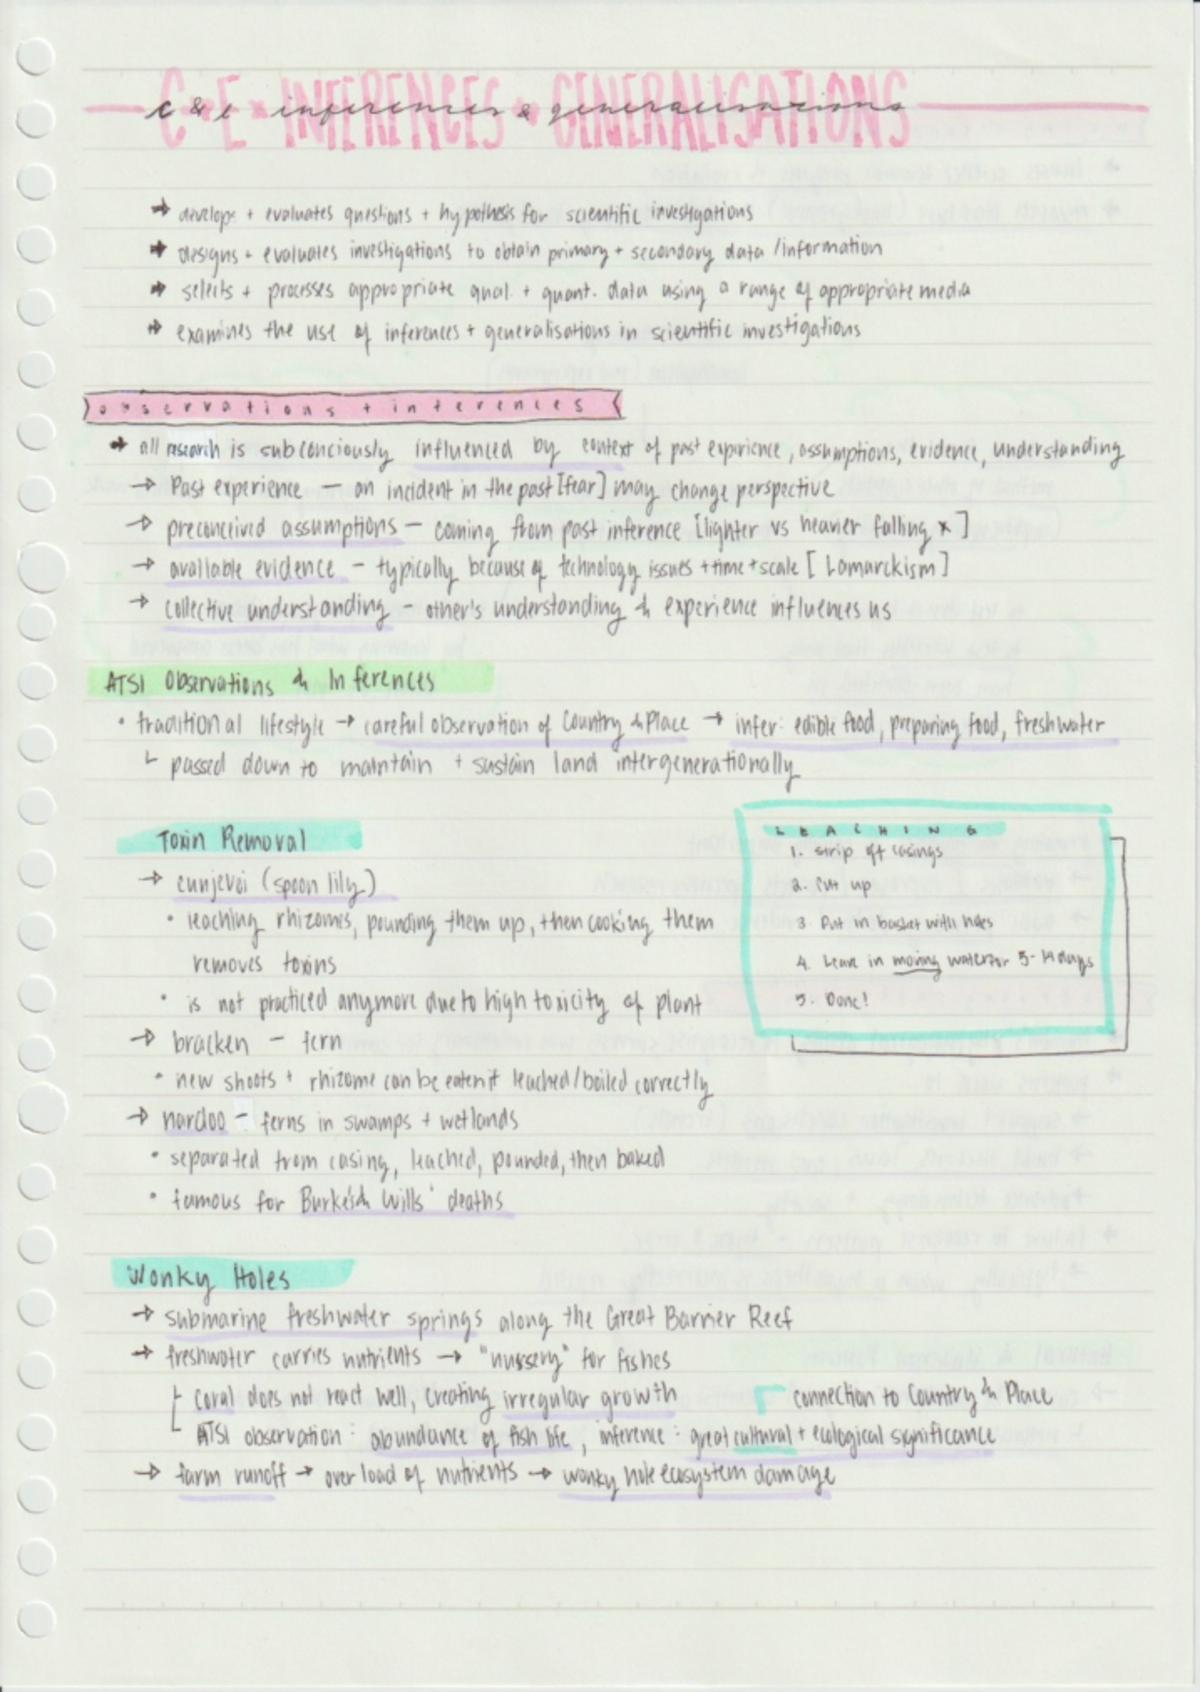 C & E INFERENCES + GENERALISATIONS
c & e inferences & generalisations
→ develops + evaluates questions + hypothesis for scientific investigations
→ designs + evaluates investigations to obtain primary + secondary data / information
→ selects + processes appropriate qual. + quant. data using a range of appropriate media
→ examines the use of inferences + generalisations in scientific investigations
observations + inferences
→ all research is subconciously influenced by context of past experience, assumptions, evidence, understanding
→ Past experience — an incident in the past [fear] may change perspective
→ preconceived assumptions — coming from past inference [lighter vs heavier falling x ]
→ available evidence — typically because of technology issues + time + scale [ Lamarckism ]
→ collective understanding — other's understanding & experience influences us
ATSI Observations & Inferences
• traditional lifestyle → careful observation of Country & Place → infer: edible food, preparing food, freshwater
└ passed down to maintain + sustain land intergenerationally
Toxin Removal
→ cunjevoi (spoon lily)
• leaching rhizomes, pounding them up, then cooking them
removes toxins
• is not practiced anymore due to high toxicity of plant
→ bracken — fern
• new shoots + rhizome can be eaten if leached/boiled correctly
→ nardoo — ferns in swamps + wetlands
• separated from casing, leached, pounded, then baked
• famous for Burke's & Wills' deaths
LEACHING
1. strip off casings
2. cut up
3. Put in basket with holes
4. Leave in moving water for 5-14 days
5. Done!
Wonky Holes
→ submarine freshwater springs along the Great Barrier Reef
→ freshwater carries nutrients → "nursery" for fishes
├ coral does not react well, creating irregular growth
└ ATSI observation: abundance of fish life, inference: great cultural + ecological significance
connection to Country & Place
→ farm runoff → overload of nutrients → wonky hole ecosystem damage